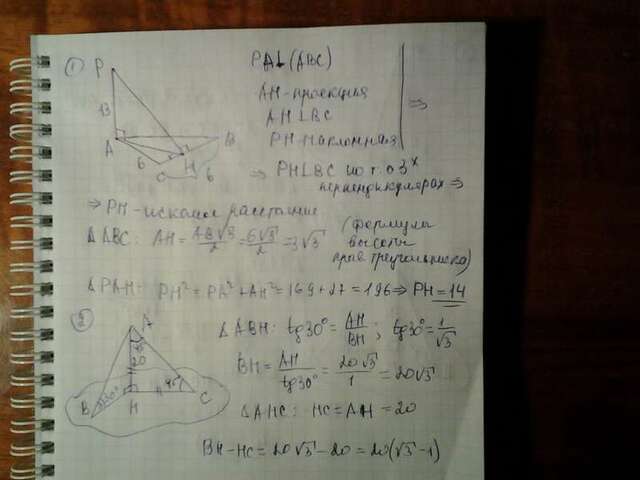 ①
P
13
A
6
C
H
B
6
PA⊥(ABC)
AH-проекция
AH⊥BC
PH-наклонная
⇒
⇒ PH⊥BC по т. о 3ˣ
перпендикулярах ⇒
⇒ PH-искомое расстояние
ΔABC: AH = AB√3/2 = 6√3/2 = 3√3
(формулы
высоты
прав треугольника)
ΔPAH: PH² = PA² + AH² = 169 + 27 = 196 ⇒ PH = 14
②
A
45°
20
B
30°
H
45°
C
ΔABH: tg30° = AH/BH; tg30° = 1/√3
BH = AH/tg30° = 20√3/1 = 20√3
ΔAHC: HC = AH = 20
BH-HC = 20√3 - 20 = 20(√3 - 1)